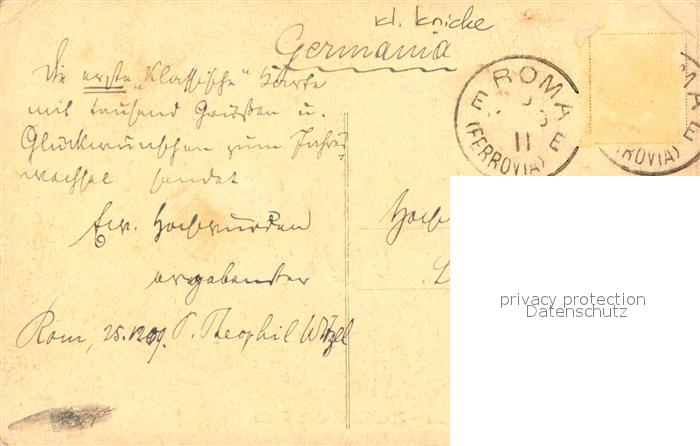 kl. Knicke
Germania
Die erste "Klassische" Karte
mit tausend Grüßen u.
Glückwünschen zum Jahres-
wechsel sendet
Ew. Hochwürden
ergebenster
Rom, 25.12.09. P. Theophil Witzel
ROMA
(FERROVIA)
11
Hoch
privacy protection
Datenschutz